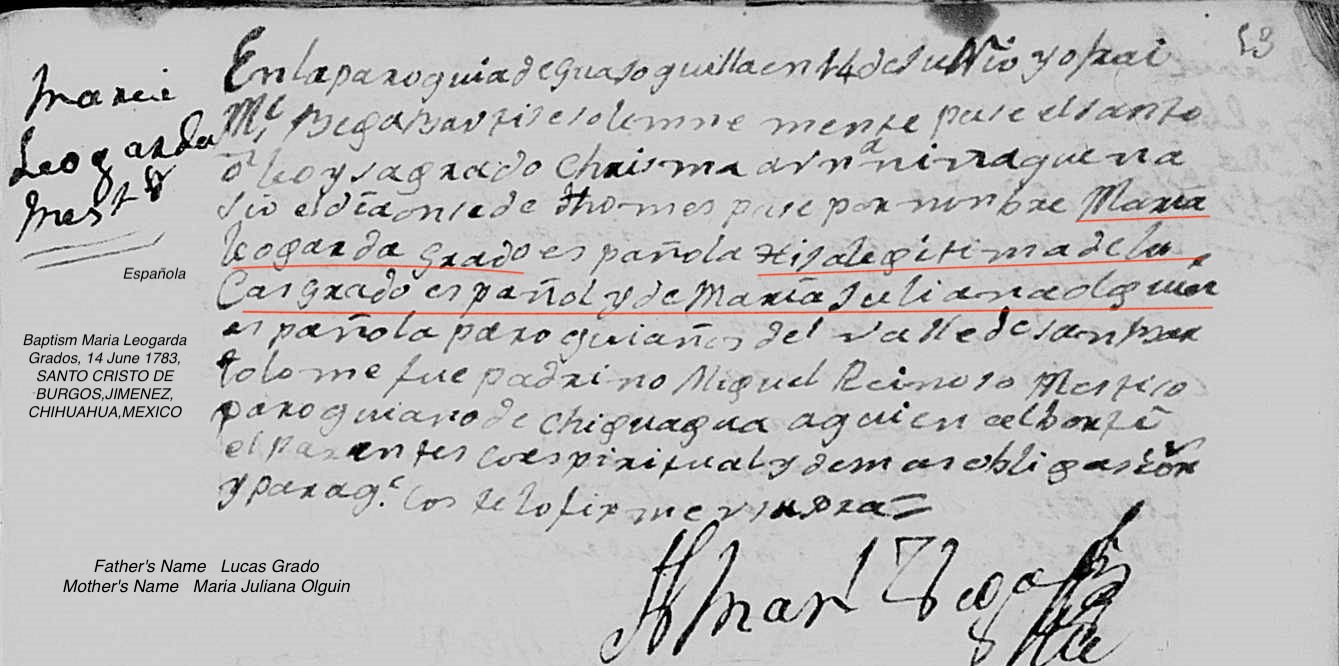 53
En la paroquia de Guasoquilla en 14 de Junio yo frai
Mᶜ Bega Bautise solemne mente puse el santo
oleo y sagrado Chrisma a vnᵃ nina que na
sio el dia onse de dho mes puse por nonbre Maria
leogarda grado española Hija legitima de lu
Cas grado español y de Maria Juliana olguin
española paroquianos del valle de san bar
tolome fue padrino Miguel Reinoso Mestiso
paroquiano de chiguagua a quien
el parentesco espiritual y demas obligasion
y para qᵉ Conste lo firme vt supra =
Maria
Leogarda
Española
Baptism Maria Leogarda
Grados, 14 June 1783,
SANTO CRISTO DE
BURGOS,JIMENEZ,
CHIHUAHUA,MEXICO
Father's Name Lucas Grado
Mother's Name Maria Juliana Olguin